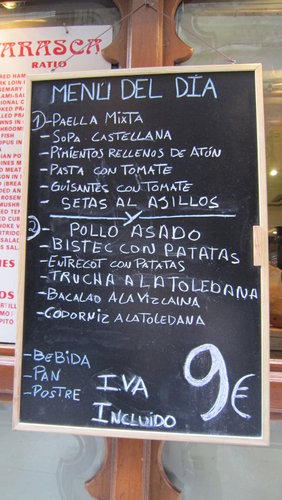 ARASCA
RATIO
MENU DEL DÍA
1)-PAELLA MIXTA
-SOPA CASTELLANA
-PIMIENTOS RELLENOS DE ATÚN
-PASTA CON TOMATE
-GUISANTES CON TOMATE
-SETAS AL AJILLOS
Y
2)-POLLO ASADO
-BISTEC CON PATATAS
-ENTRECOT CON PATATAS
-TRUCHA A LA TOLEDANA
-BACALAO A LA VIZCAINA
-CODORNIZ A LA TOLEDANA
-BEBIDA
-PAN
-POSTRE
IVA
INCLUIDO
9€